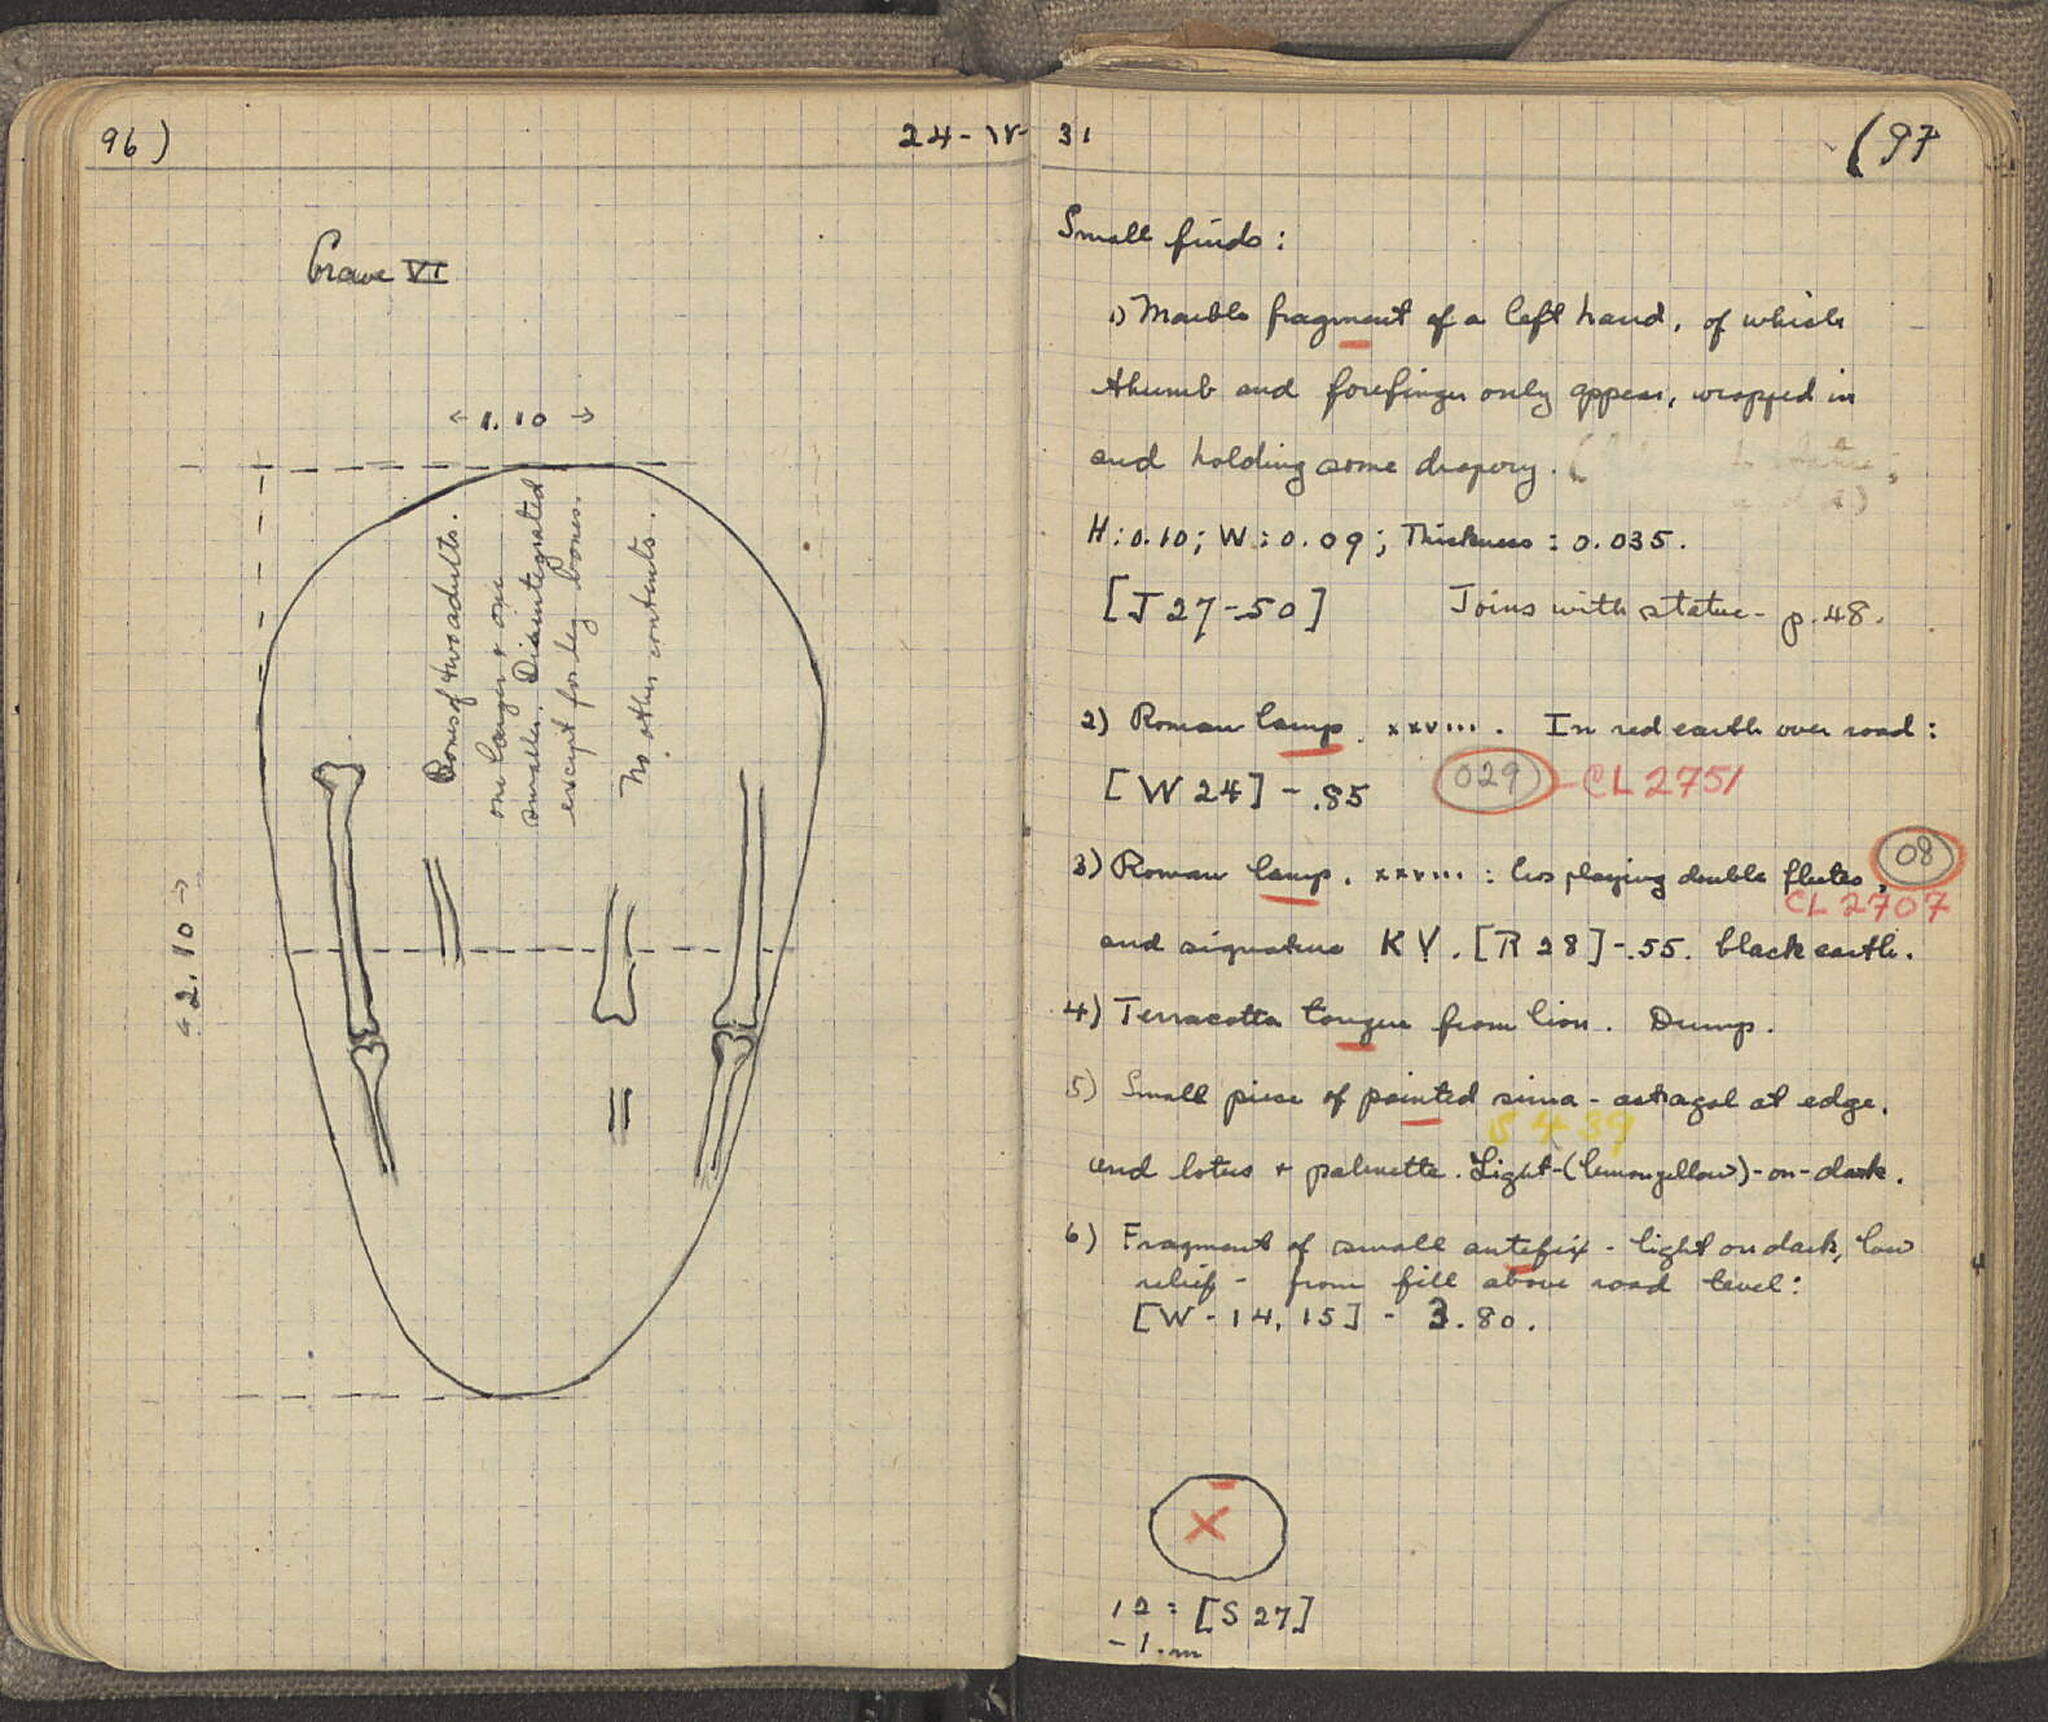 96)
24-IV-31
(97
Grave VI
← 1.10 →
← 2.10 →
Bones of two adults.
one larger + one
smaller. Disintegrated
except for leg bones.
No other contents.
Small finds:
1) Marble fragment of a left hand, of which
thumb and forefinger only appear, wrapped in
and holding some drapery.
H: 0.10; W: 0.09; Thickness: 0.035.
[J 27-50] Joins with statue - p. 48.
2) Roman lamp. xxviii. In red earth over road:
[W 24] - .85 029 - CL 2751
3) Roman lamp. xxviii: playing double flutes, 08
CL 2707
and signature K Y. [R 28] - .55. black earth.
4) Terracotta tongue from lion. Dump.
5) Small piece of painted sima - astragal at edge,
S 439
and lotus + palmette. Light-(lemon yellow)-on-dark.
6) Fragment of small antefix - light on dark, low
relief - from fill above road level:
[W - 14, 15] - 3.80.
X
12 = [S 27]
- 1.m